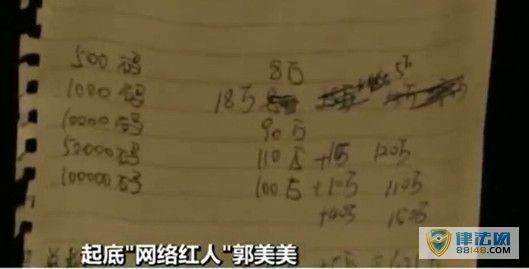 500码 8万
1000码 18万
10000码 90万
50000码 110万 +10万 120万
100000码 100万 +10万 110万
+40万 150万
起底"网络红人"郭美美
律法网
88148.com